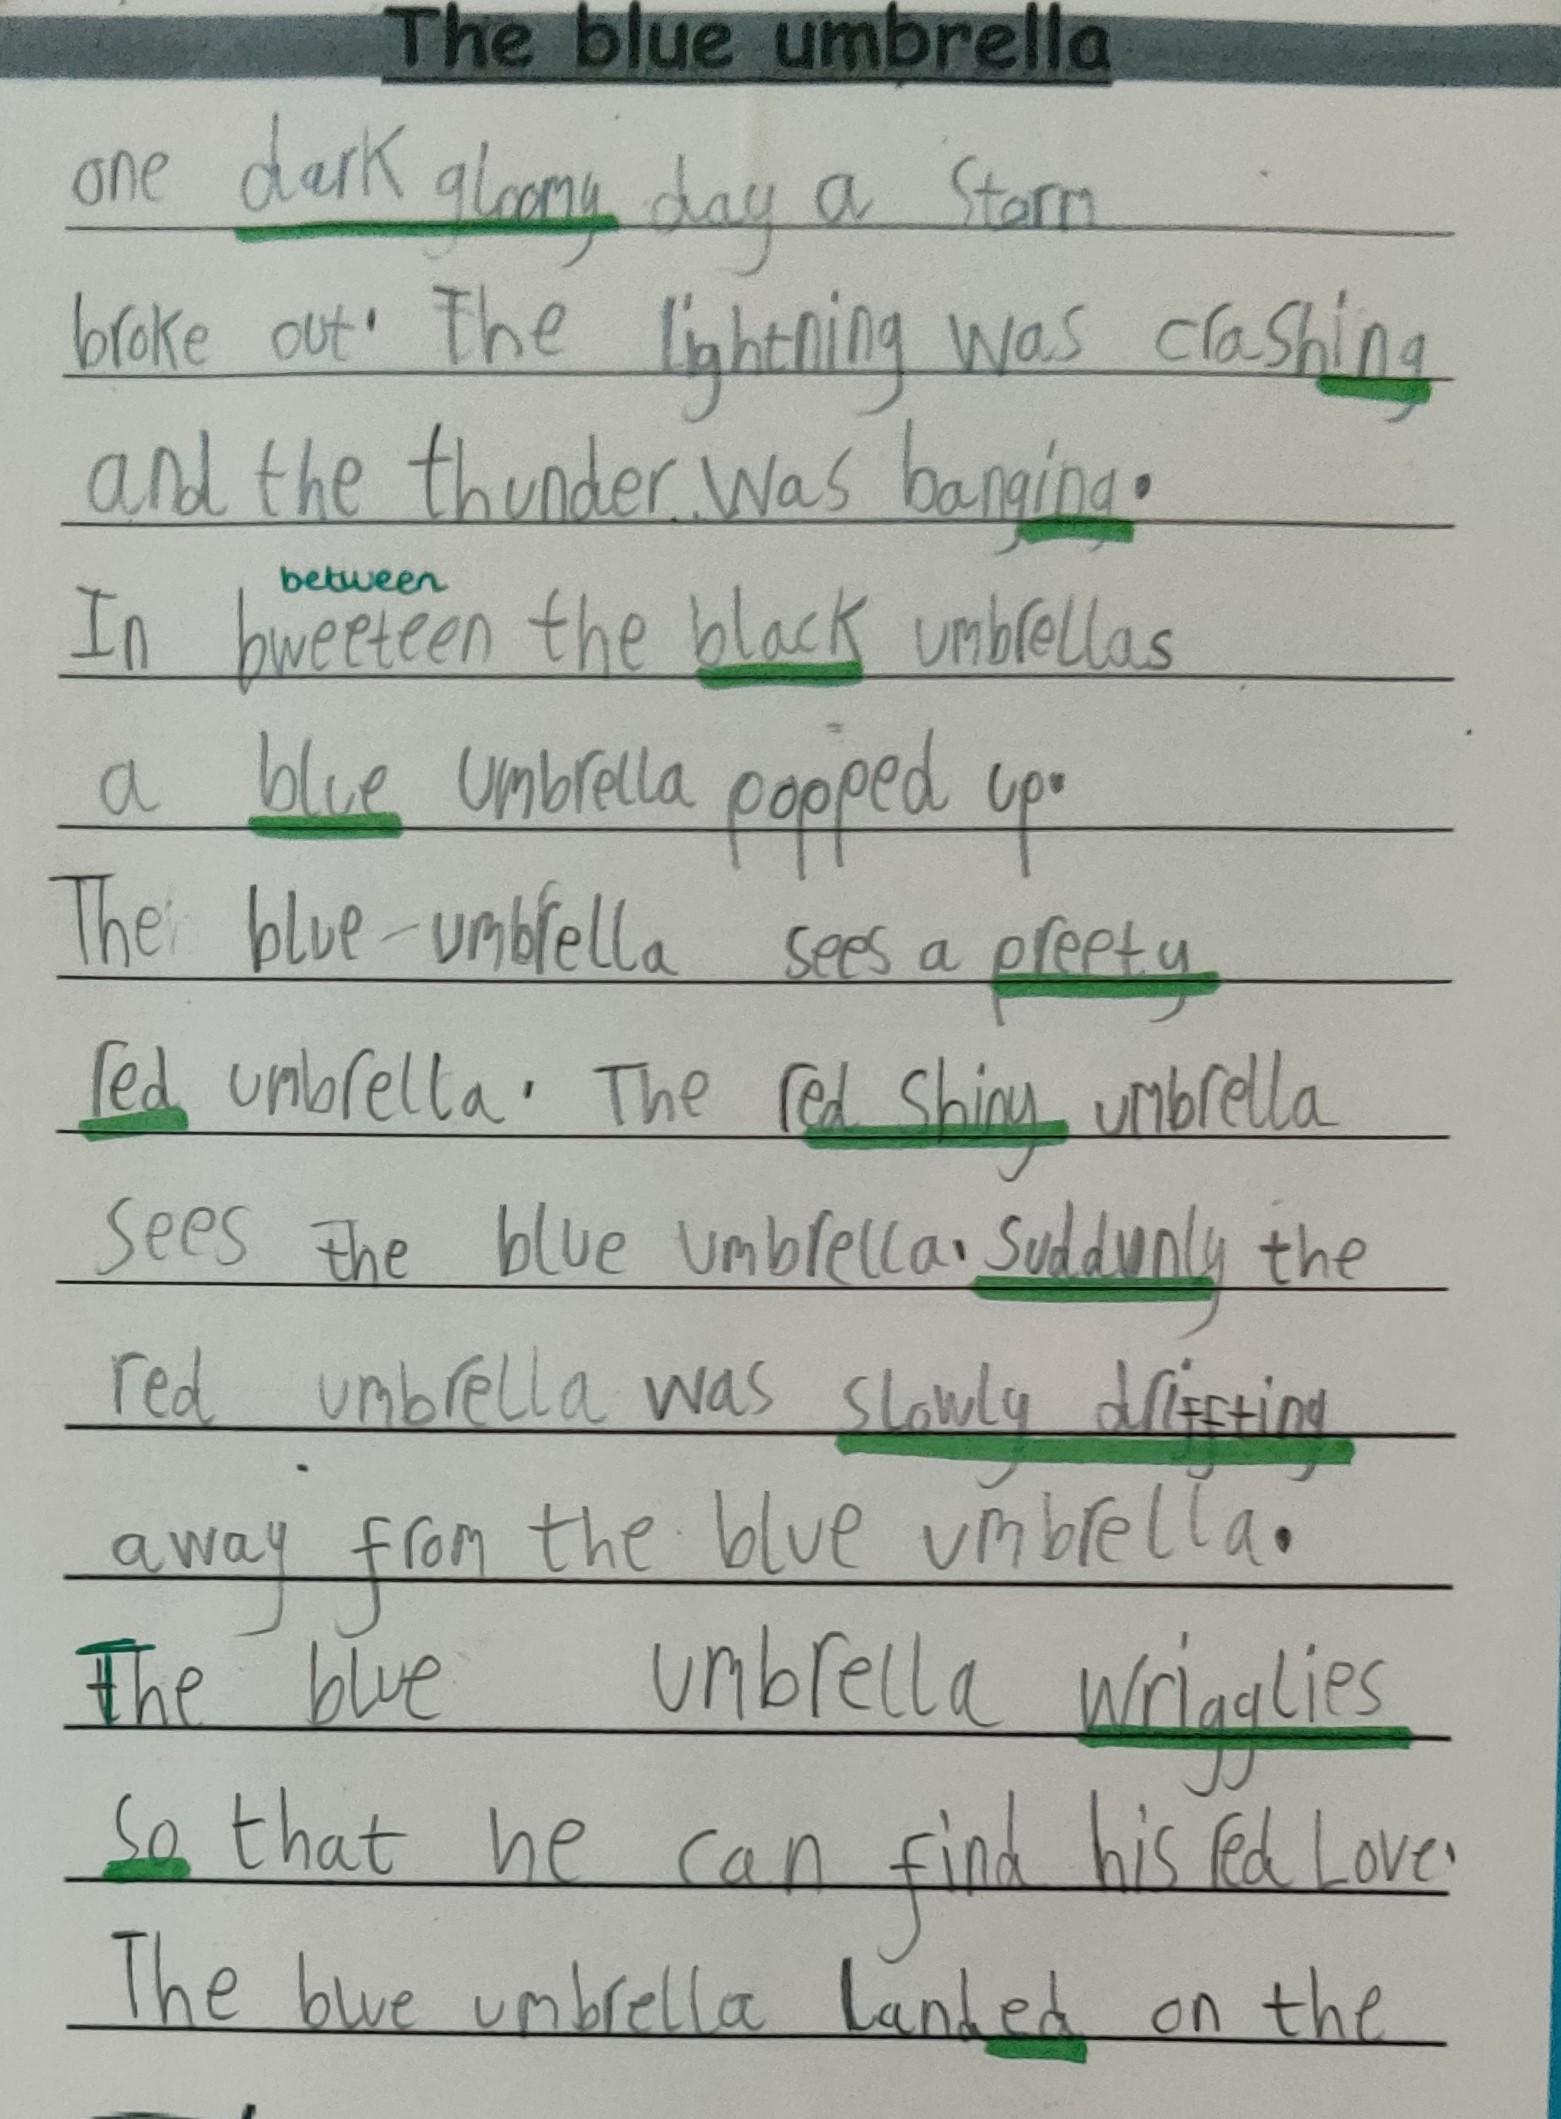 The blue umbrella
one dark gloomy day a storm
broke out. The lightning was crashing
and the thunder was banging.
between
In bweeteen the black umbrellas
a blue umbrella popped up.
The blue-umbrella sees a preety
red umbrella. The red shiny umbrella
sees the blue umbrella. Suddunly the
red umbrella was slowly driffting
away from the blue umbrella.
The blue umbrella wrigglies
so that he can find his red Love.
The blue umbrella landed on the